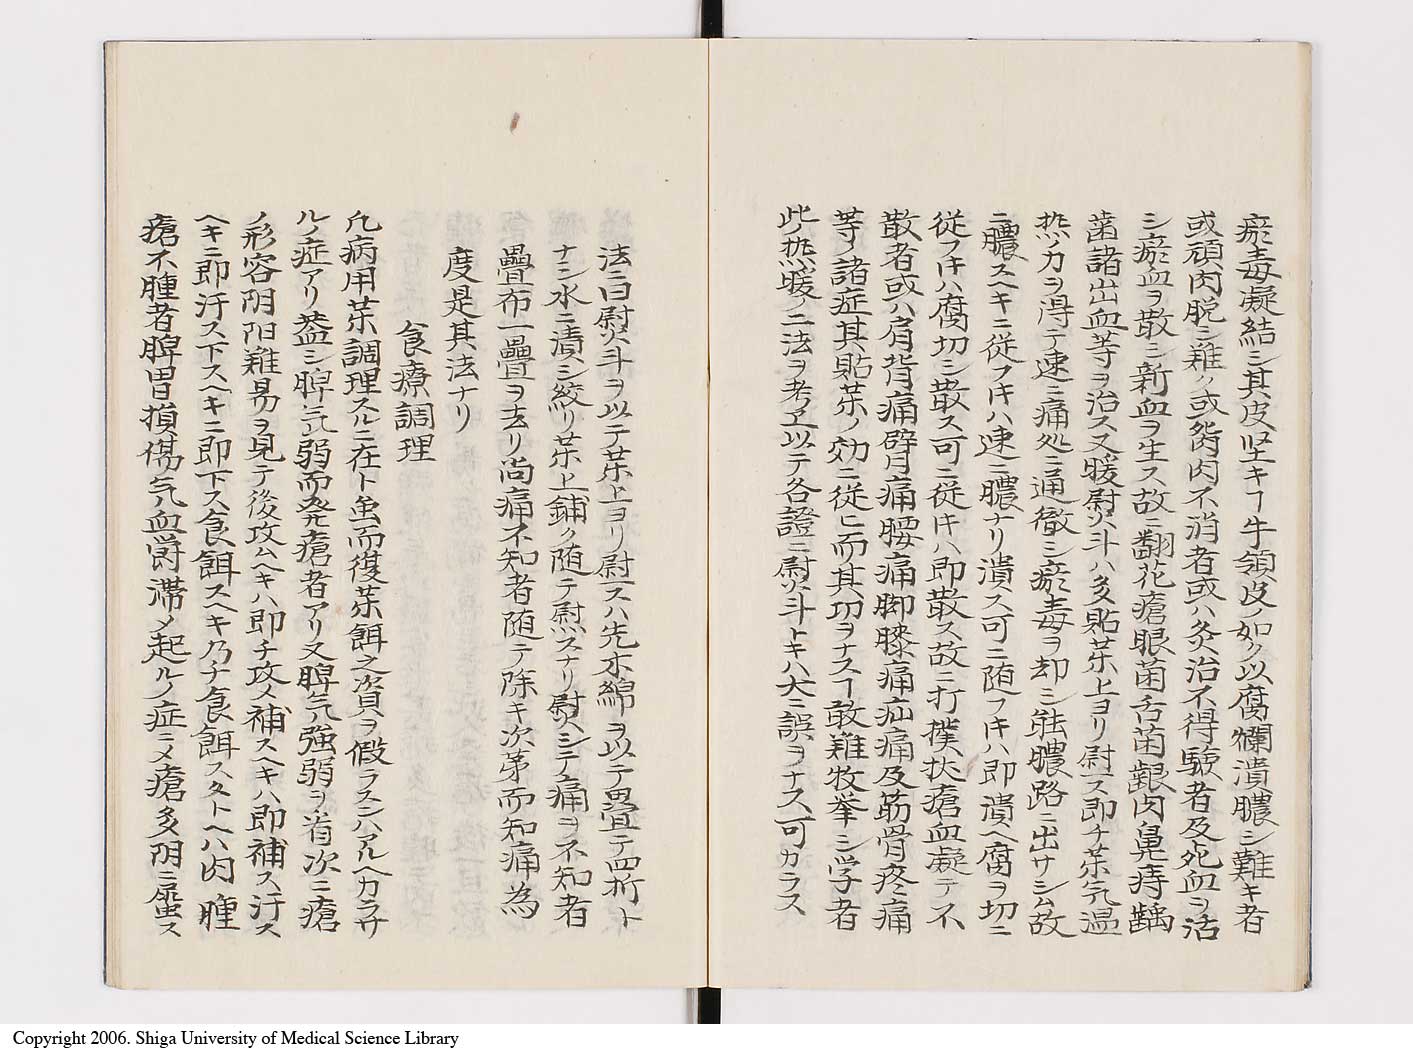 瘀毒凝結シ其皮堅キヿ牛領皮ノ如ク以腐爛潰膿シ難キ者
或頑肉脱シ難ク或胬肉不消者或ハ灸治不得驗者及死血ヲ活
シ瘀血ヲ散シ新血ヲ生ス故ニ翻花瘡眼菌舌菌齦肉鼻痔齲
歯諸出血等ヲ治ス又暖熨斗ハ多貼茶上ヨリ熨ス即チ茶気温
熱ノ力ヲ得テ速ニ痛処ニ通徹シ瘀毒ヲ却シ能膿路ニ出サシム故
ニ膿スヘキニ従フ𪜈ハ速ニ膿ナリ潰ス可ニ随フ𪜈ハ即潰ヘ腐ヲ切ニ
従フ𪜈ハ腐切シ散ス可ニ従𪜈ハ即散ス故ニ打撲扶瘡血凝テ不
散者或ハ肩背痛臂痛腰痛脚膝痛疝痛及筋骨疼痛
等ノ諸症其貼茶ノ効ニ従ヒ而其功ヲナスヿ敢難枚挙シ学者
此熱暖ノ二法ヲ考ヱ以テ各證ニ熨斗トキハ大ニ誤ヲナス可カラス
法ニ曰熨斗ヲ以テ茶上ヨリ熨スハ先木綿ヲ以テ畳テ四折ト
ナシ水ニ漬シ絞リ茶上鋪ク随テ熨スナリ熨シテ痛ヲ不知者
疊布一疊ヲ去リ尚痛不知者随テ除キ次第而知痛為
度是其法ナリ
食療調理
凡病用茶調理スルニ在ト虽而復茶餌之資ヲ假ラスンハアルヘカラサ
ルノ症アリ蓋シ脾気弱而発瘡者アリ又脾気強弱ヲ省次ニ瘡
ノ形容阴阳難易ヲ見テ後攻ムヘキハ即チ攻メ補スヘキハ即補ス汗ス
ヘキニ即汗ス下スヘキニ即下ス食餌スヘキ乃チ食餌スタトヘハ肉腫
瘡不腫者脾胃損傷気血欝滞メ起ルノ症ニメ瘡多阴ニ属ス
Copyright 2006. Shiga University of Medical Science Library